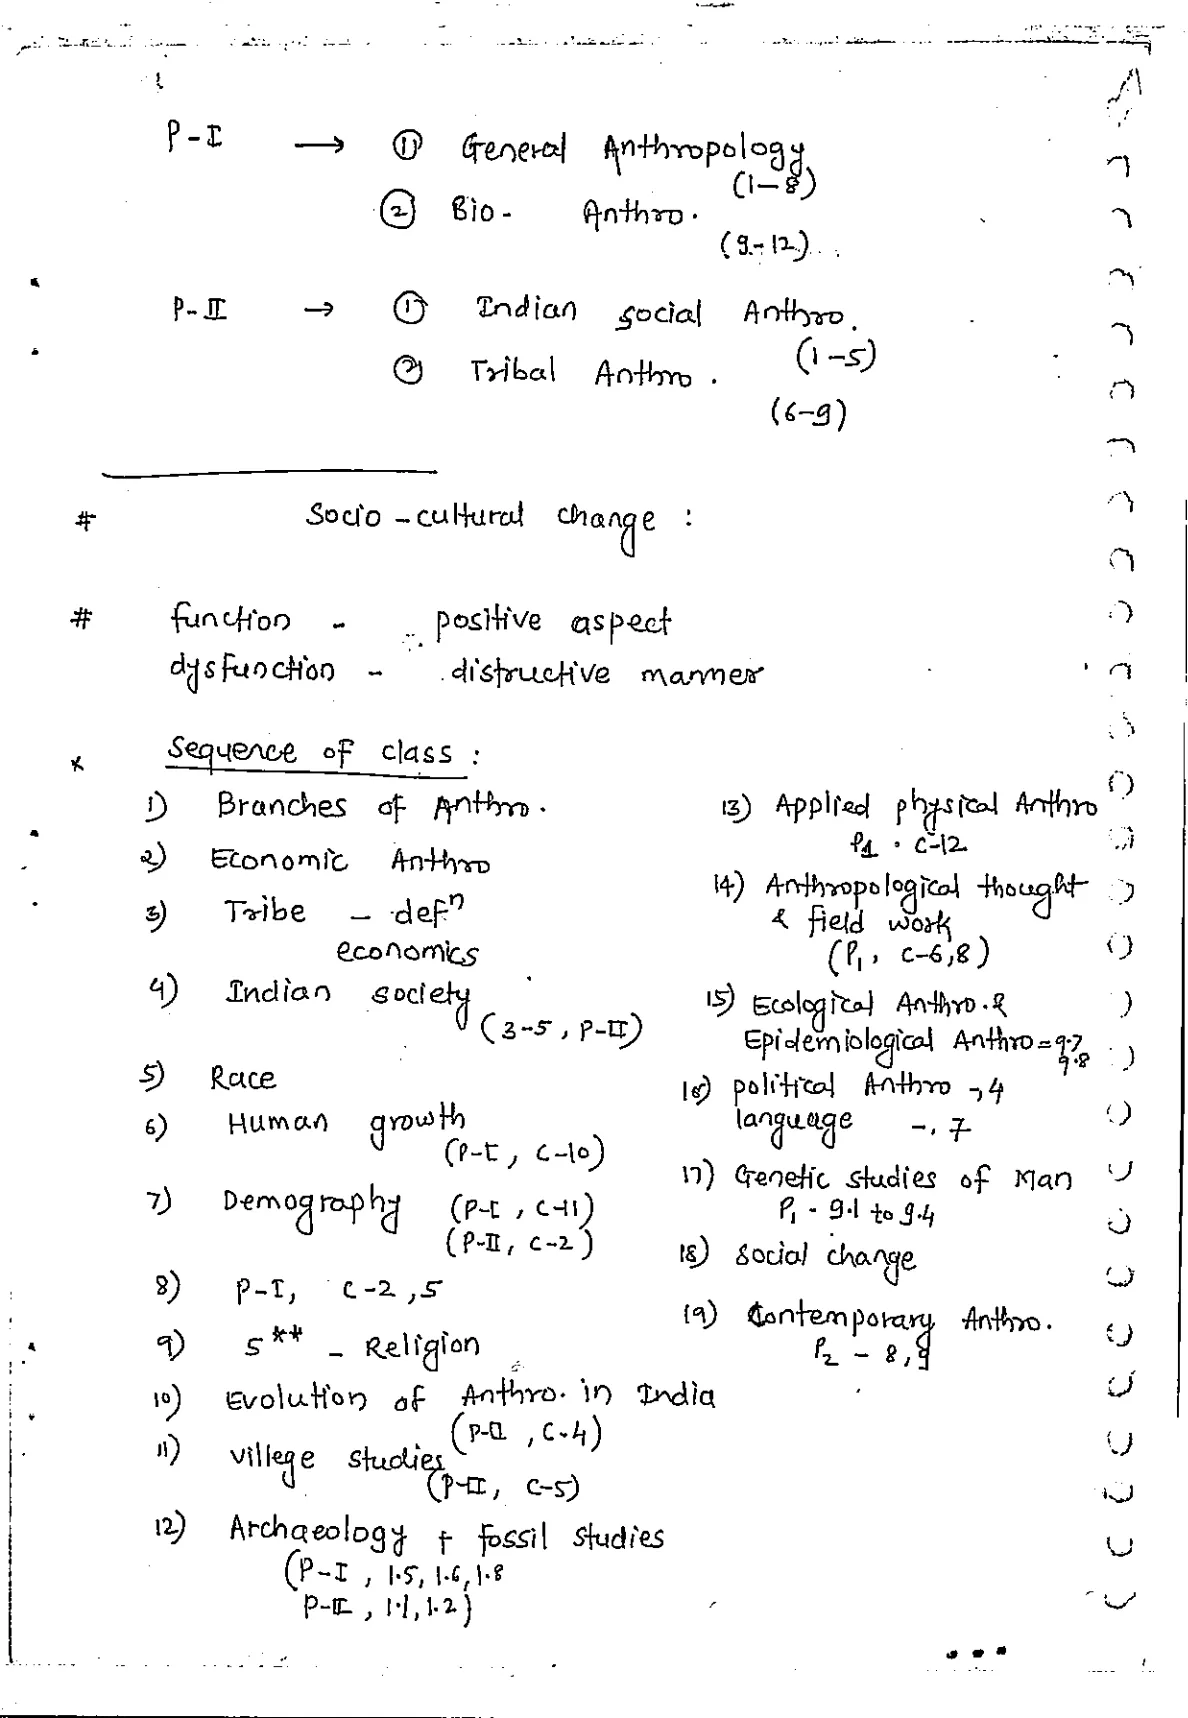 P-I → ① General Anthropology
(1-8)
② Bio- Anthro.
(9-12)
P-II → ① Indian social Anthro.
(1-5)
② Tribal Anthro.
(6-9)
# Socio-cultural change :
# function - positive aspect
dysfunction - distructive manner
* Sequence of class :
1) Branches of Anthro.
2) Economic Anthro
3) Tribe - defn
economics
4) Indian society
(3-5, P-II)
5) Race
6) Human growth
(P-I, C-10)
7) Demography (P-I, C-11)
(P-II, C-2)
8) P-I, C-2,5
9) 5** - Religion
10) Evolution of Anthro. in India
(P-II, C-4)
11) villege studies
(P-II, C-5)
12) Archaeology + fossil studies
(P-I, 1.5, 1.6, 1.8
P-II, 1.1, 1.2)
13) Applied physical Anthro
P1 . C-12
14) Anthropological thought
& field work
(P1, C-6,8)
15) Ecological Anthro. &
Epidemiological Anthro = 9.7
9.8
16) political Anthro → 4
language -. 7
17) Genetic studies of Man
P1 - 9.1 to 9.4
18) Social change
19) Contemporary Anthro.
P2 - 8,9